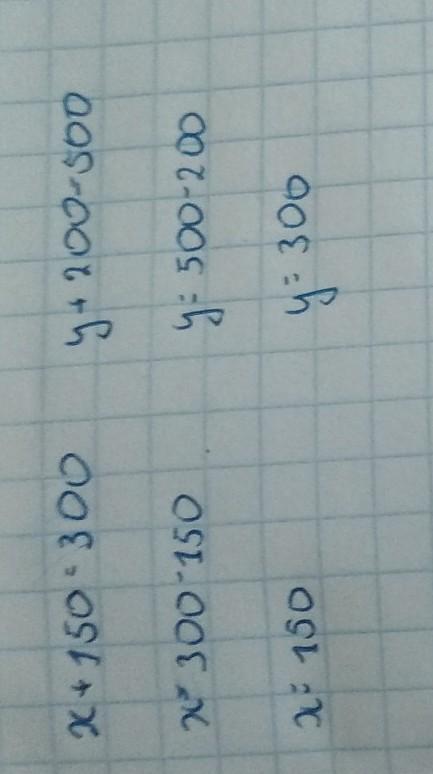 x + 150 = 300
x = 300 - 150
x = 150
y + 200 = 500
y = 500 - 200
y = 300